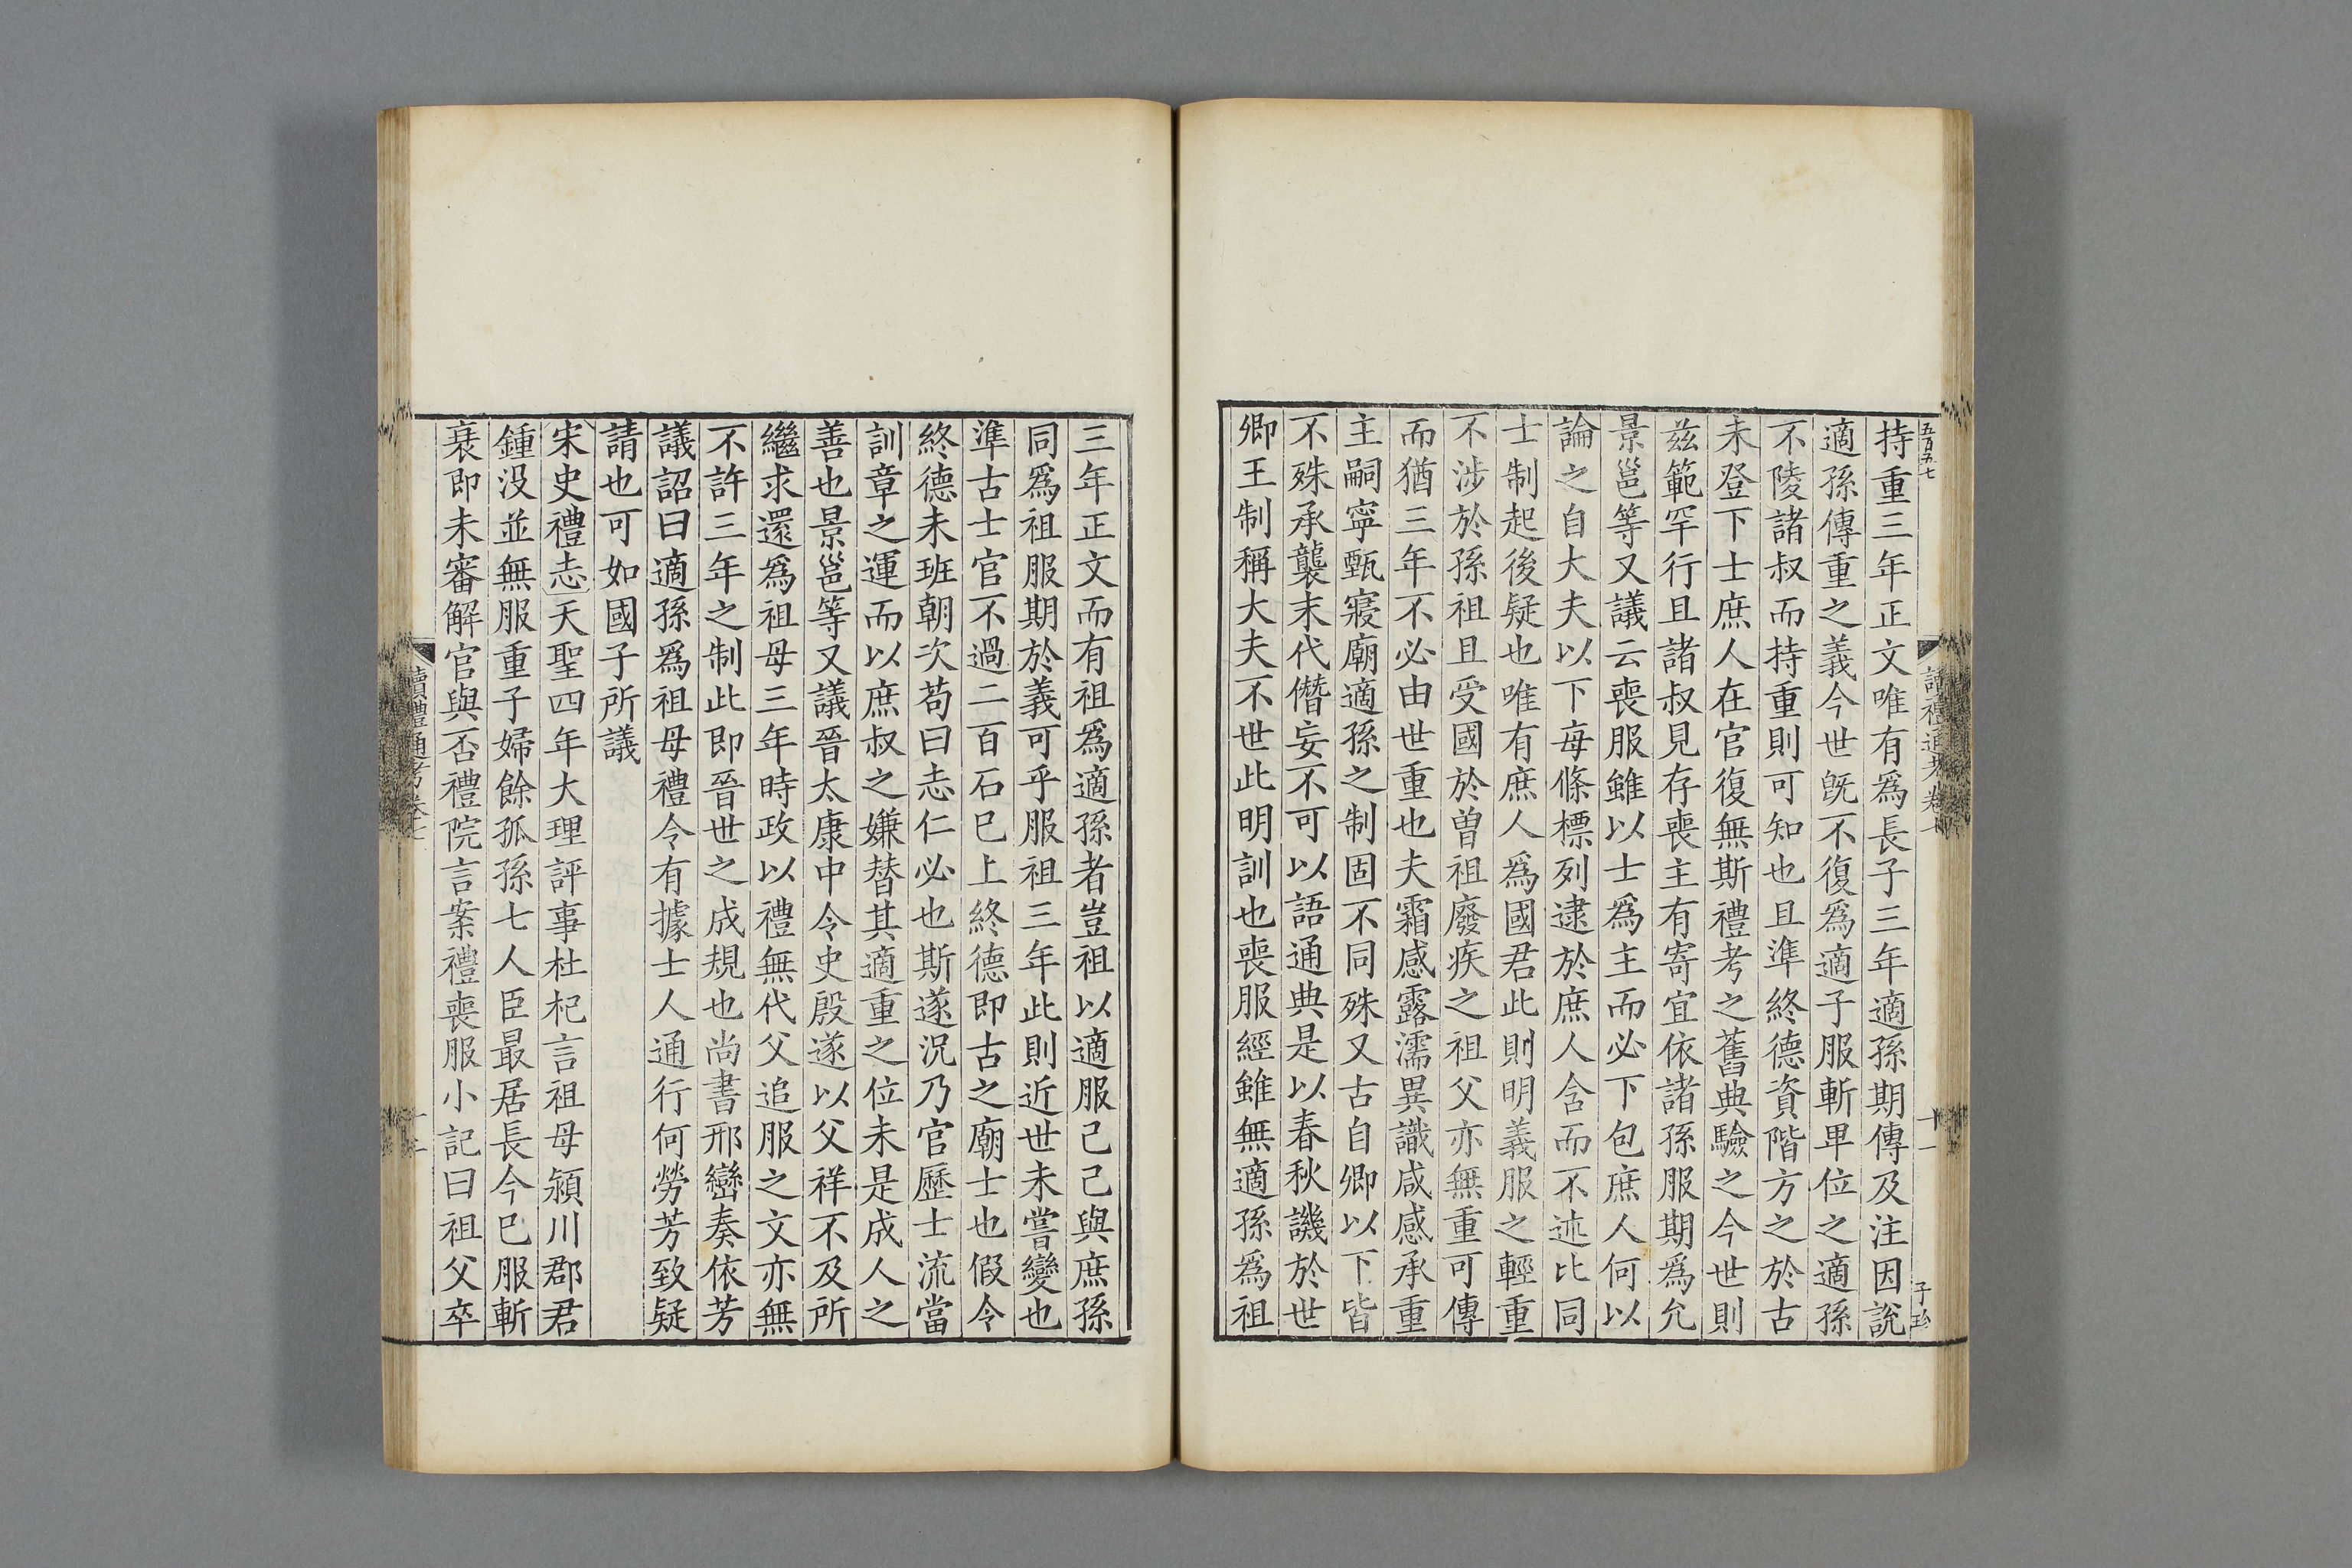 五百五七
讀禮通考卷七
十一
子珍
持重三年正文唯有爲長子三年適孫期傳及注因説
適孫傳重之義今世旣不復爲適子服斬𤰞位之適孫
不陵諸叔而持重則可知也且準終德資階方之於古
未登下士庶人在官復無斯禮考之舊典驗之今世則
兹範罕行且諸叔見存喪主有寄宜依諸孫服期爲允
景邕等又議云喪服雖以士爲主而必下包庶人何以
論之自大夫以下每條標列逮於庶人含而不述比同
士制起後疑也唯有庶人爲國君此則明義服之輕重
不涉於孫祖且受國於曾祖廢疾之祖父亦無重可傳
而猶三年不必由世重也夫霜感露濡異識咸感承重
主嗣寧甄寢廟適孫之制固不同殊又古自卿以下皆
不殊承襲末代僭妄不可以語通典是以春秋譏於世
卿王制稱大夫不世此明訓也喪服經雖無適孫爲祖
三年正文而有祖爲適孫者豈祖以適服己己與庶孫
同爲祖服期於義可乎服祖三年此則近世未嘗變也
準古士官不過二百石已上終德即古之廟士也假令
終德未班朝次苟曰志仁必也斯遂況乃官歷士流當
訓章之運而以庶叔之嫌替其適重之位未是成人之
善也景邕等又議晉太康中令史殷遂以父祥不及所
繼求還爲祖母三年時政以禮無代父追服之文亦無
不許三年之制此即晉世之成規也尚書邢巒奏依芳
議詔曰適孫爲祖母禮令有據士人通行何勞芳致疑
請也可如國子所議
宋史禮志天聖四年大理評事杜杞言祖母潁川郡君
鍾没並無服重子婦餘孤孫七人臣最居長今已服斬
衰即未審解官與否禮院言案禮喪服小記曰祖父卒
讀禮通考卷七